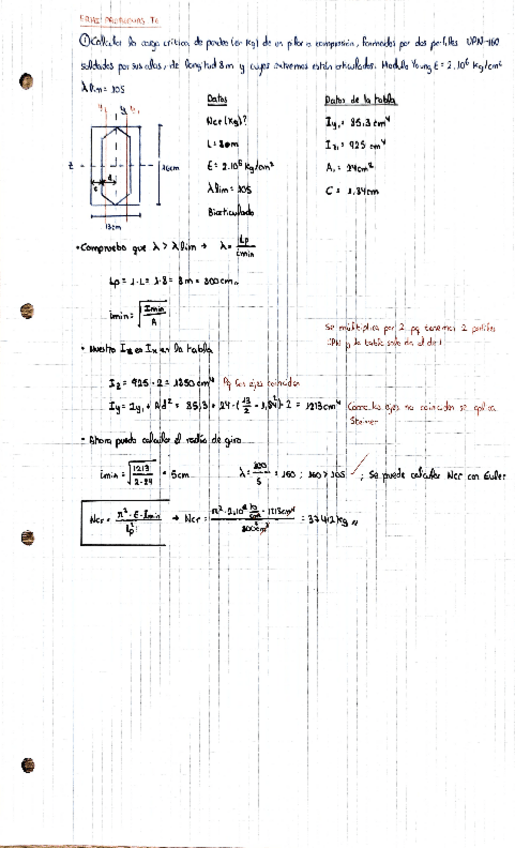 ① Calcular la carga crítica de pandeo (en Kg) de un pilar a compresión, formados por dos perfiles UPN-160
soldados por sus alas, de longitud 8m y cuyos extremos están articulados. Modulo Young E = 2.10⁶ Kg/cm²
λlim = 105
Datos
Ncr (Kg)?
L = 8m
E = 2.10⁶ Kg/cm²
λlim = 105
Biarticulado
Datos de la tabla
Iy₁ = 85.3 cm⁴
Iz₁ = 925 cm⁴
A₁ = 24cm²
C = 1.84cm
y₁ y y₁
z
c d
16cm
13cm
• Compruebo que λ > λlim → λ = Lp / imin
Lp = 1·L = 1·8 = 8m = 800cm
imin = √(Imin / A)
Se multiplica por 2 pq tenemos 2 perfiles
UPN y la tabla solo da el de 1
• Nuestro Iz es Ix en la tabla
Iz = 925 · 2 = 1850 cm⁴ Pq los ejes coinciden
Iy = Iy₁ + A·d² = 85,3 + 24 · (13/2 - 1,84)² · 2 = 1213cm⁴ Como los ejes no coinciden se aplica
Steiner
• Ahora puedo calcular el radio de giro
imin = √(1213 / 2·24) = 5cm λ = 800/5 = 160 ; 160 > 105 ✓ ; Se puede calcular Ncr con Euler
Ncr = π² · E · Imin / Lp² → Ncr = π² · 2·10⁶ kg/cm² · 1213cm⁴ / 800cm² = 37412kg